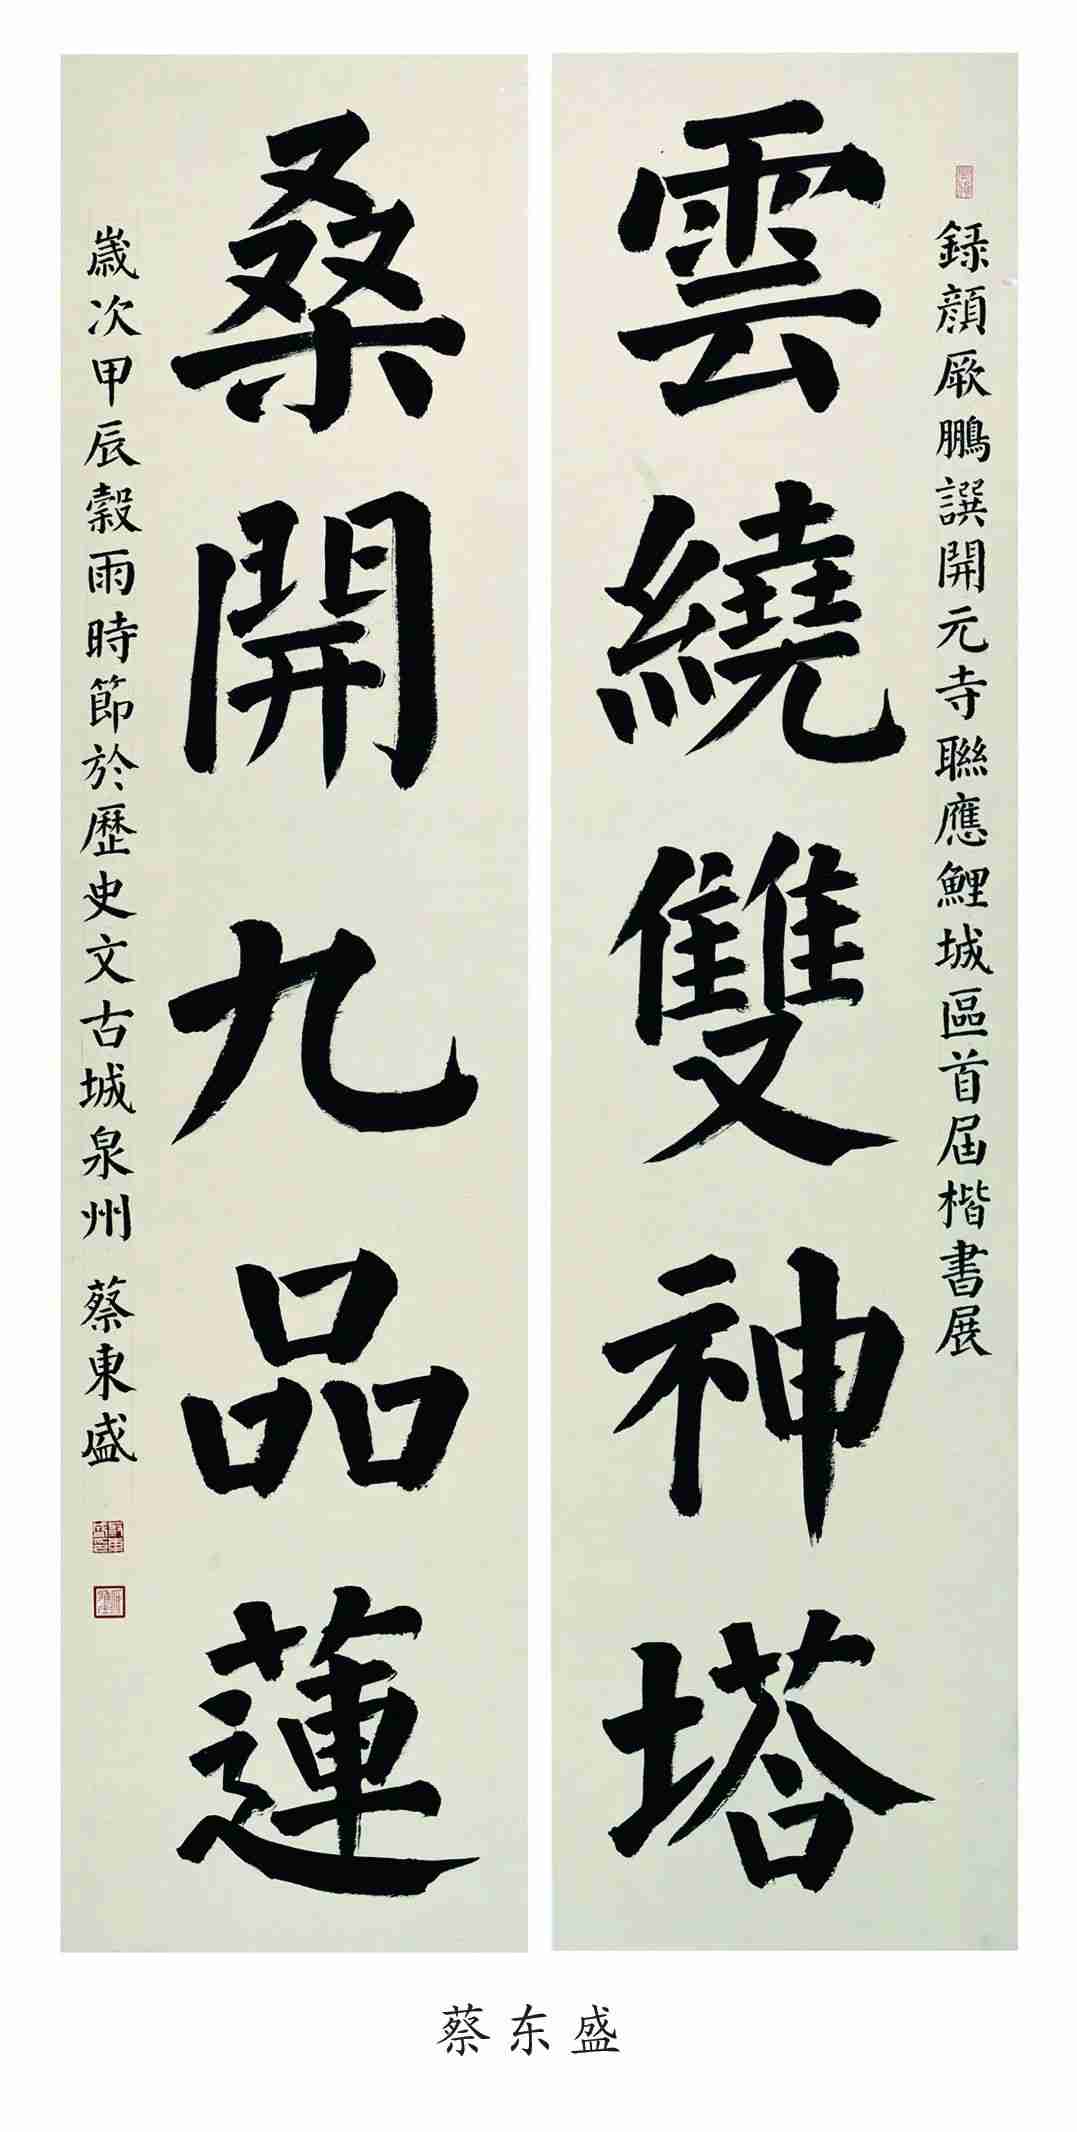 録顔厥鵬譔開元寺聯應鯉城區首届楷書展
雲繞雙神塔
桑開九品蓮
歲次甲辰穀雨時節於歷史文古城泉州 蔡東盛
蔡东盛